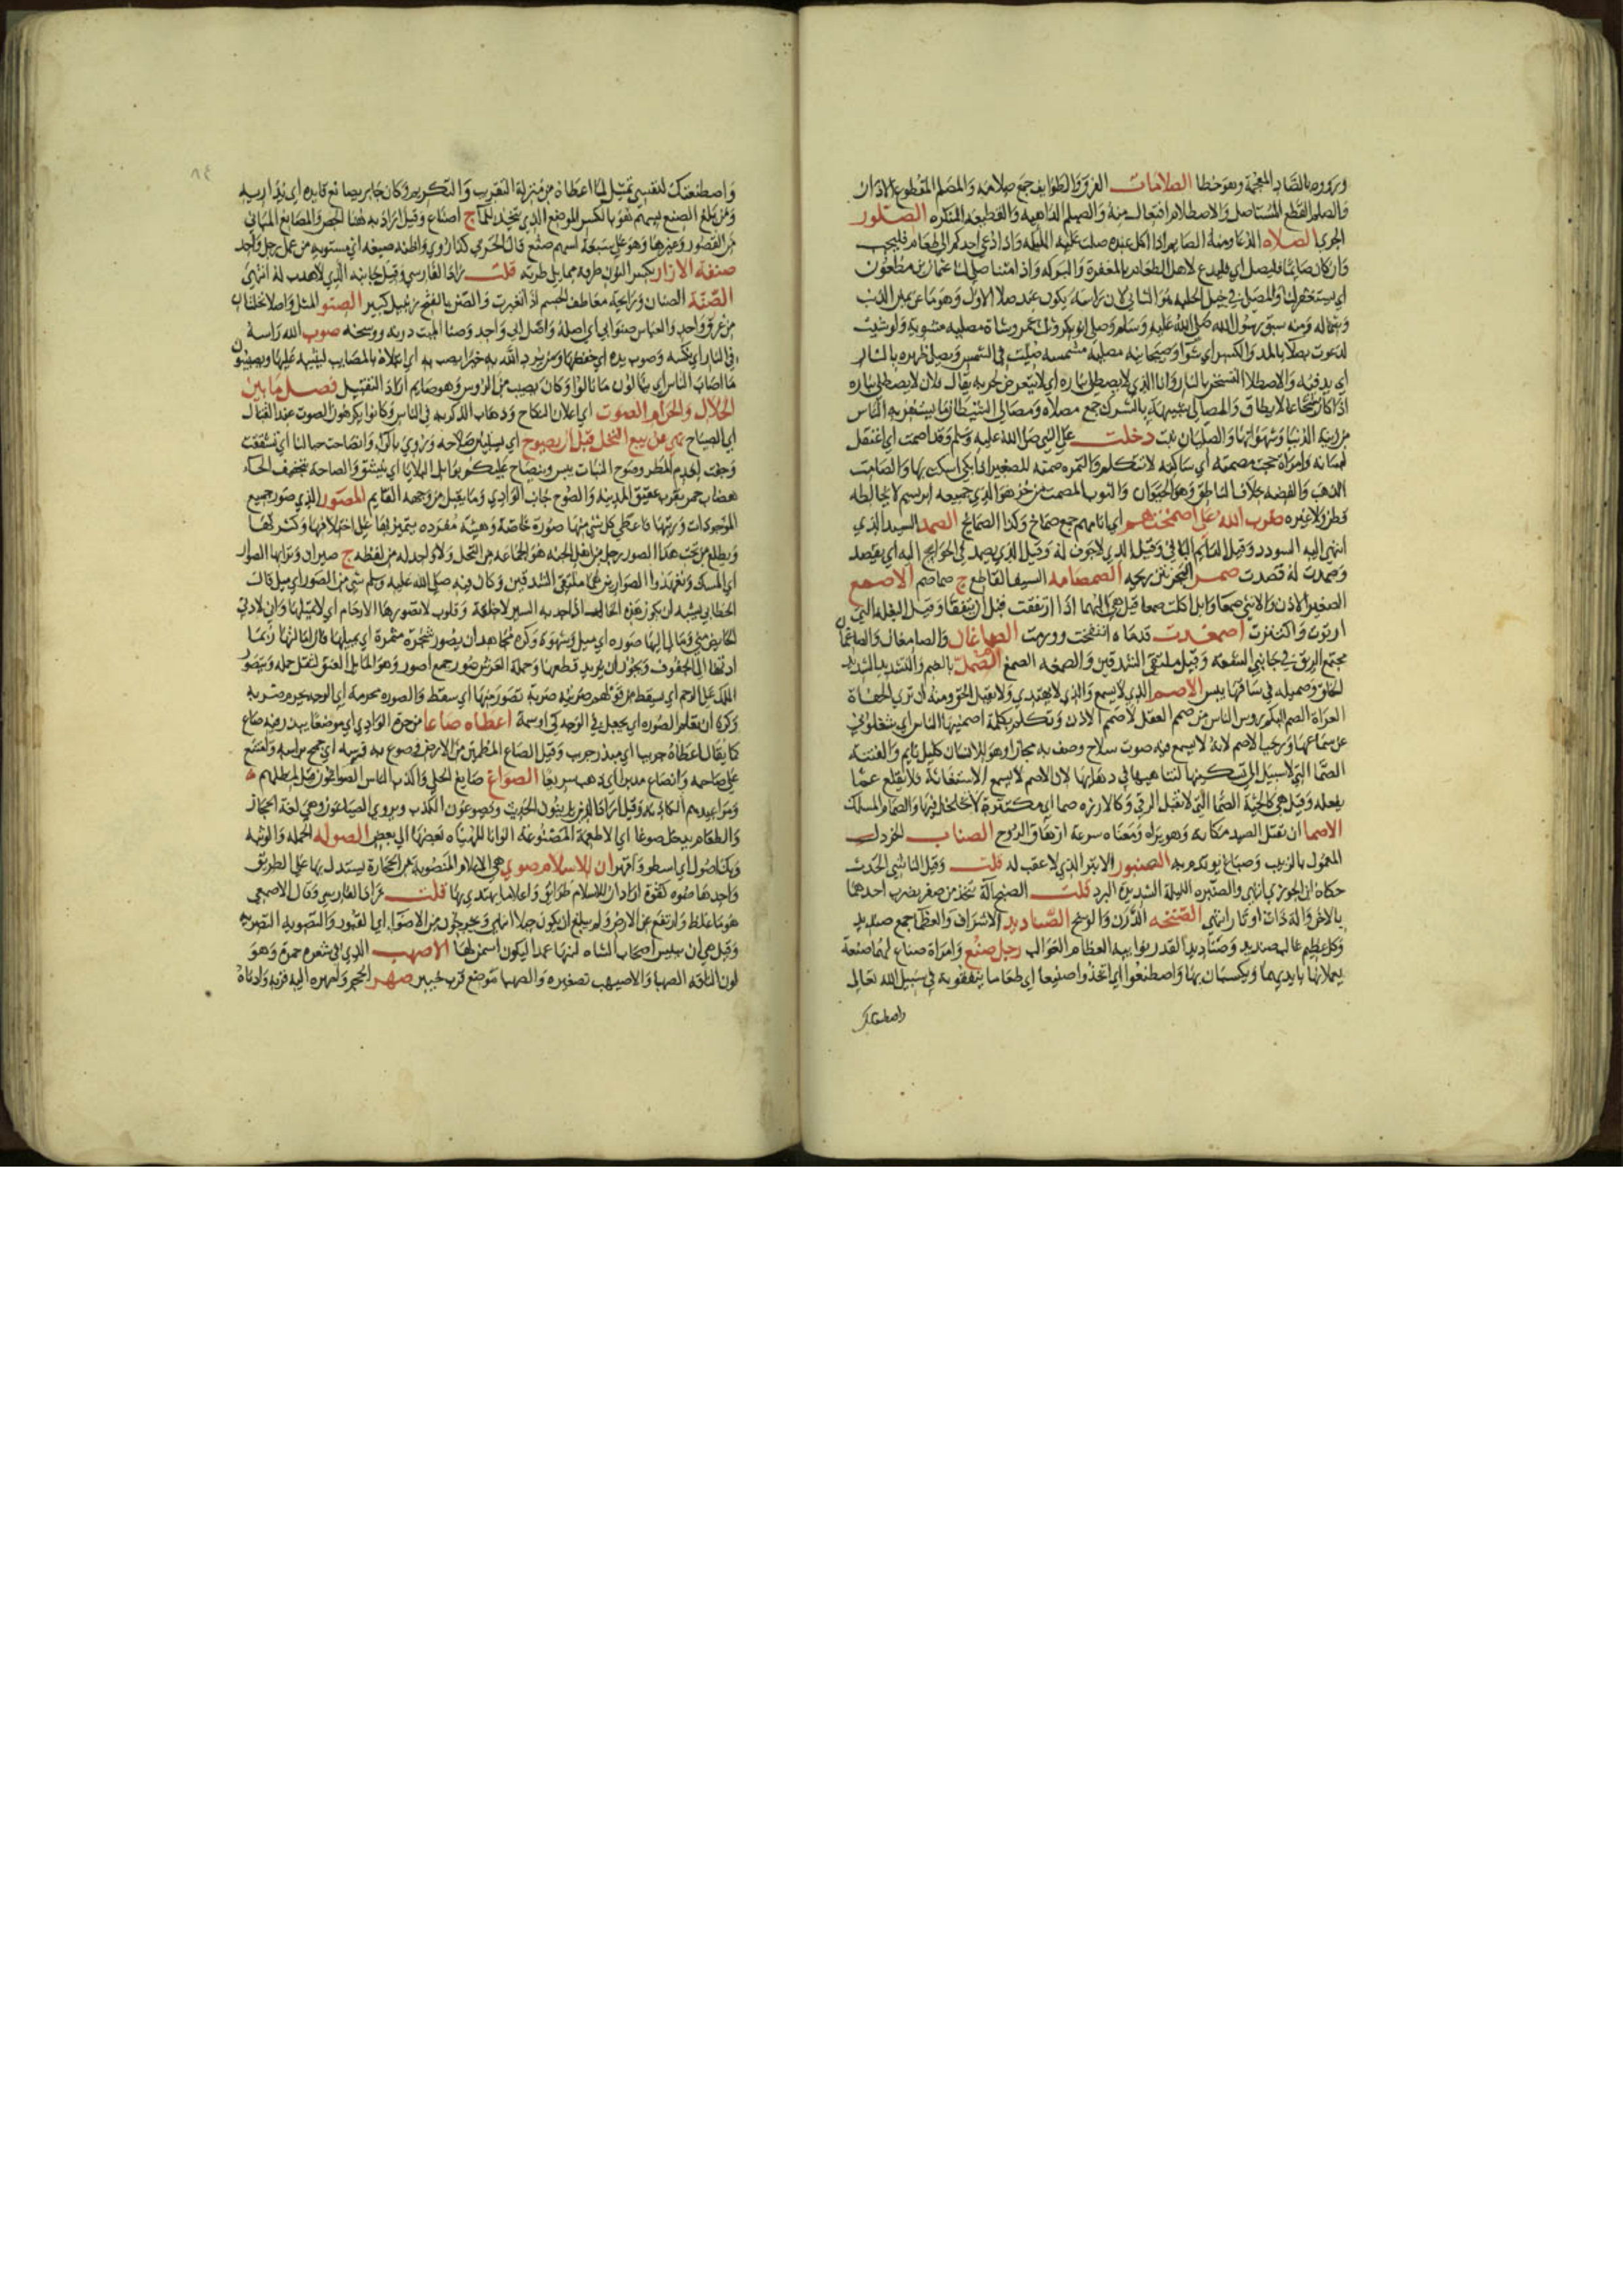 وروده بالضاد المعجمة وهو خطا الصلامات الفرق والطوايف جمع صلامه والمصلم المقطوع الاذان
والصلم القطع المستاصل والاصطلام افتعال منه والصيلم الداهيه والقطيعه المنكره الصلور
الجري الصلاه الدعا ومنه الصايم اذا اكل عنده صلت عليه المليكه واذا دعي احدكم الى طعام فليجب
وان كان صايما فليصل اي فليدع لاهل الطعام بالمغفرة والبركه واذا متنا صلى لنا عثمان بن مظعون
اي يستغفر لنا والمصلي في خيل الحلبه هو الثاني لان راسه يكون عند صلا الاول وهو ما عن يمين الذنب
وشماله ومنه سبق رسول الله صلى الله عليه وسلم وصلى ابو بكر وثلث عمر وشاة مصليه مشويه ولو شيت
لدعوت بصلا بالمد والكسر اي شوا وصيحانيه مصليه مشمسه صليت في الشمس ويصلي ظهره بالنار
اي يدفيه والاصطلا التسخن بالنار وانا الذي لا يصطلى بناره اي لا يتعرض لحربه يقال فلان لا يصطلى بناره
اذا كان شجاعا لا يطاق والمصالي شبيهة بالشرك جمع مصلاه ومصالي الشيطان ما يستفز به الناس
من زينة الدنيا وشهواتها والصليان نبت دخلت على النبي صلى الله عليه وسلم وقد اصمت اي اعتقل
لسانه وامراة حجت مصمتة اي ساكته لا تتكلم والتمره صمته للصغير اذا بكى اسكت بها والصامت
الذهب والفضه خلاف الناطق وهو الحيوان والثوب المصمت من خز هو الذي جميعه ابريسم لا يخالطه
قطن ولا غيره ضرب الله على اصمختهم اي انامهم جمع صماخ وكذا الصمايخ الصمد السيد الذي
انتهى اليه السودد وقيل الدايم الباقي وقيل الذي لا جوف له وقيل الذي يصمد في الحوايج اليه اي يقصد
وصمدت له قصدت صمر البحر نتن ريحه الصمصامه السيف القاطع ج صماصم الاصمع
الصغير الاذن والانثى صمعا وابل اكلت صمعا قيل هي البهما اذا ارتفعت قبل ان يتفقا وقيل البقله التي
ارتوت واكتنزت اصمغدت قدماه انتفخت وورمت الصماغان والصامغان والصماغان
مجتمع الريق في جانبي الشفه وقيل ملتقى الشدقين والصمغه الصمغ الصمل بالضم والتشديد الشديد
الخلق وصميله في ساقها يبس الاصم الذي لا يسمع والذي لا يهتدي ولا يقبل الحق ومنه ان ترى الحفاة
العراة الصم البكم روس الناس من صمم العقل لا صمم الاذن وتكلم بكلمة اصمنيها الناس اي شغلوني
عن سماعها ورجب الاصم لانه لا يسمع فيه صوت سلاح وصف به مجازا وهو للانسان كليل نايم والفتنة
الصما التي لا سبيل الى تسكينها لتناهيها في دهايها لان الاصم لا يسمع الاستغاثة فلا يقلع عما
يفعله وقيل هي كالحية الصما التي لا تقبل الرقى وكالارزه صما اي مكتنزة لا تخلخل فيها والصمام المسلك
الاصما ان تقتل الصيد مكانه وهو يراه ومعناه سرعة ازهاق الروح الصناب الخردل
المعمول بالزبيب وصباغ يوتدم به الصنبور الابتر الذي لا عقب له قلت وقيل الناشي الحدث
حكاه ابن الجوزي انتهى والصنبره الليلة الشديدة البرد قلت الصنج آلة تتخذ من صفر يضرب احدهما
بالاخر وآلة ذات اوتار انتهى الصنخه الدرن والوسخ الصناديد الاشراف والعظما جمع صنديد
وكل عظيم غالب صنديد وصناديد القدر نوايبه العظام الغوالب رجل صنع وامراة صناع لهما صنعة
يعملانها بايديهما ويكسبان بها واصطنعوا اي اتخذوا صنيعا اي طعاما ينفقونه في سبيل الله تعالى
واصطنعتك
٨٤
واصطنعتك لنفسي تمثيل لما اعطاه من منزلة التقريب والتكريم وكان جابر يصانع قايده اي يداريه
ومن بلغ الصنع بسهم هو بالكسر الموضع الذي يتخذ للمآ ج اصناع وقيل اراد به هنا الحصن والمصانع المباني
من القصور وغيرها وهو على سبعة اسهم صنع قال الحربي كذا روي واظنه صيغه اي مستويه من عمل رجل واحد
صنفة الازار بكسر النون طرفه مما يلي طرته قلت زاد الفارسي وقيل جانبه الذي لا هدب له انتهى
الصنة الصنان ورايحة معاطف الجسم اذا تغيرت والصن بالفتح زنبيل كبير الصنو المثل واصله نخلتان
من عرق واحد والعباس صنو ابي اي اصله واصل ابي واحد وصنا الميت درنه ووسخه صوب الله راسه
في النار اي نكسه وصوب يده اي خفضها ومن يرد الله به خيرا يصب به اي ابتلاه بالمصايب ليثيبه عليها ويصيبون
ما اصاب الناس اي ينالون ما نالوا وكان يصيب من الروس وهو صايم اراد التقبيل فصل ما بين
الحلال والحرام الصوت اي اعلان النكاح وذهاب الذكر به في الناس وكانوا يكرهون الصوت عند القتال
اي الصياح نهى عن بيع النخل قبل ان يصوح اي يستبين صلاحه وروي بالرا وانصاحت جبالنا اي تشققت
وجفت لعدم المطر وصوح النبات يبس وينصاح عليكم بوابل البلايا اي ينشق والصاحه بتخفيف الحآء
هضاب حمر بقرب عقيق المدينه والصوح جانب الوادي وما يقبل من وجهه القايم المصور الذي صور جميع
الموجودات ورتبها فاعطى كل شي منها صورة خاصة وهيئة مفرده يتميز بها على اختلافها وكثرتها
ويطلع من تحت هذا الصور رجل من اهل الجنه هو الجماعه من النخل ولا واحد له من لفظه ج صيران وترابها الصوار
اي المسك وتعهدوا الصوارين هما ملتقى الشدقين وكان فيه صلى الله عليه وسلم شي من الصور اي ميل قال
الخطابي يشبه ان يكون هذه الحال اذا جد به السير لا خلقة وقلوب لا تصورها الارحام اي لا تميلها واني لادني
الحايض مني وما بي اليها صوره اي ميل وشهوة وكره مجاهد ان يصور شجرة مثمرة اي يميلها فان امالتها ربما
ادتها الى الجفوف ويجوز ان يريد قطعها وحملة العرش صور جمع اصور وهو المايل العنق لثقل حمله ويتصور
الملك على الرحم اي يسقط من قولهم ضربته ضربة تصور منها اي سقط والصوره محرمة اي الوجه يحرم ضربه
وكره ان تعلم الصوره اي يجعل في الوجه كي او سمة اعطاه صاعا من حرة الوادي اي موضعا يبذر فيه صاع
كما يقال اعطاه جريبا اي مبذر جريب وقيل الصاع المطمين من الارض فصوع به فرسه اي جمح براسه وامتنع
على صاحبه وانصاع مدبرا اي ذهب سريعا الصواغ صايغ الحلي واكذب الناس الصواغون قيل لمطلهم
ومواعيدهم الكاذبه وقيل اراد الذين يزينون الحديث ويصوغون الكذب ويروى الصياغون وهي لغة الحجاز
والطعام يدخل صوغا اي الاطعمة المصنوعة الوانا المهياه بعضها الى بعض الصوله الحمله والوثبه
وبك اصول اي اسطو واقهر ان للاسلام صوى هي الاعلام المنصوبة من الحجارة يستدل بها على الطريق
واحدها صوه كقوة اراد ان للاسلام طرايق واعلاما يهتدى بها قلت زاد الفارسي وقال الاصمعي
هو ما غلظ وارتفع عن الارض ولم يبلغ ان يكون جبلا انتهى ويخرجون من الاصوآ اي القبور والتصويه التصريه
وقيل هي ان ييبس اصحاب الشاه لبنها عمدا ليكون اسمن لها الاصهب الذي في شعره حمرة وهو
لون الناقه الصهبا والاصيهب تصغيره والصهبا موضع قرب خيبر صهر الحجر واصهره اليه قربه وادناه